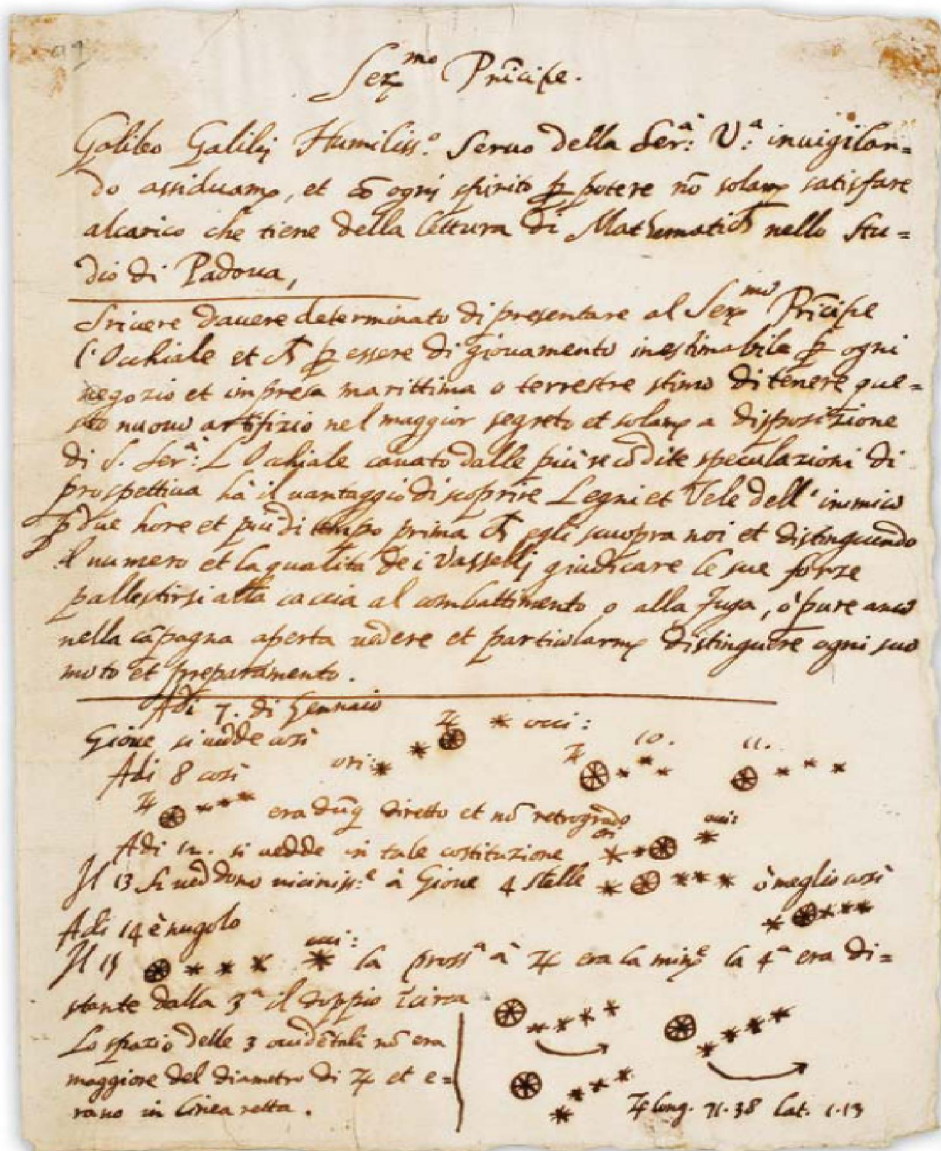 99
Ser.mo Prīcipe.
Galileo Galilej Humiliss.o Seruo della Ser:a V:a inuigilan=
do assiduam.e, et cō ogni spirito p potere nō solam.e satisfare
alcarico che tiene della lettura di Mathematich nello stu=
dio di Padoua,
Scriuere dauere determinato di presentare al Ser.mo Prīcipe
l'Occhiale et ch p essere di giouamento inestimabile p ogni
negozio et impresa marittima o terrestre stimo di tenere que=
sto nuouo artifizio nel maggior segreto et solam.e a disposizione
di S. Ser:a L Occhiale cauato dalle più recōdite speculazioni di
prospettiua hà il uantaggio di scoprire Legni et Vele dell' inimico
p due hore et più di tempo prima ch egli scuopra noi et distinguendo
il numero et la qualità dei Vasselij giudicare le sue forze
pallestirsi alla caccia al combattimento o alla fuga, ò pure anco
nella cāpagna aperta uedere et particularm.e distinguere ogni suo
moto et preparamento.
Adi 7. di Gennaio
Gioue si uedde così ♃ occi:
Adi 8 così ori: ♃ 10. 11.
♃ era dūq diretto et nō retrogrado
Adi 12. si uedde in tale costituzione ori occi:
Il 13 si ueddono uiciniss.e à Gioue 4 stelle ò meglio così
Adi 14 è nugolo
Il 15 occi: la pross.a à ♃ era la min.e la 4.a era di=
stante dalla 3.a il doppio īcirca
Lo spazio delle 3 occidētali nō era
maggiore del diametro di ♃ et e=
rano in linea retta.
♃ long. 71.38 lat. 1.13